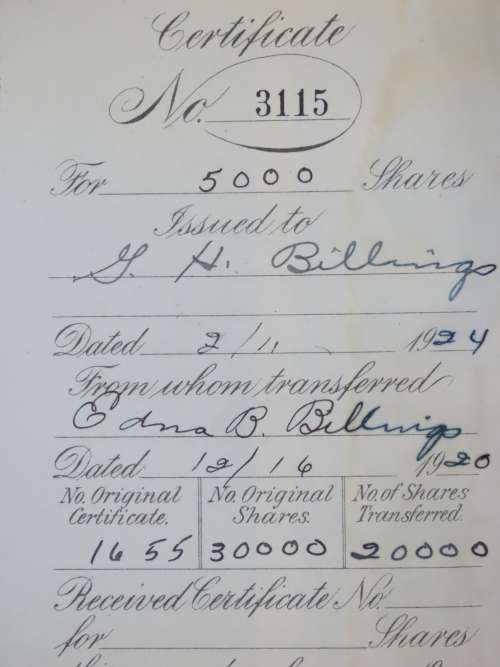 Certificate
No. 3115
For 5000 Shares
Issued to
G. H. Billings
Dated 2/1, 1924
From whom transferred
Edna B. Billings
Dated 12/16 1920
No. Original Certificate. No. Original Shares. No. of Shares Transferred.
1655 30000 20000
Received Certificate No.
for Shares